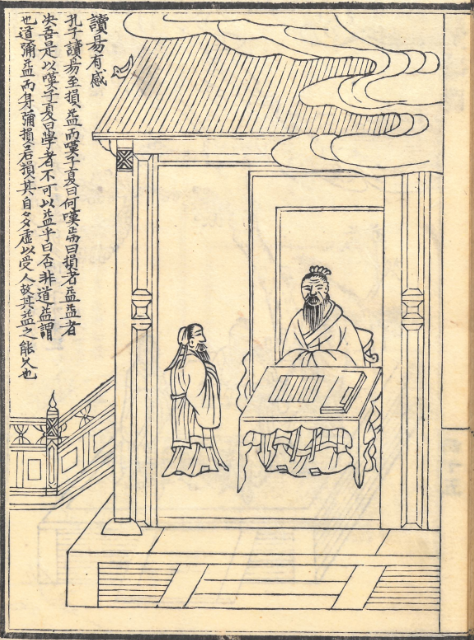 讀易有感
孔子讀易至損益而嘆子夏曰何嘆焉曰損者益益者
失吾是以嘆子夏曰學者不可以益乎曰否非道益謂
也道彌益而身彌損若損其自多虛以受人故其益之能久也